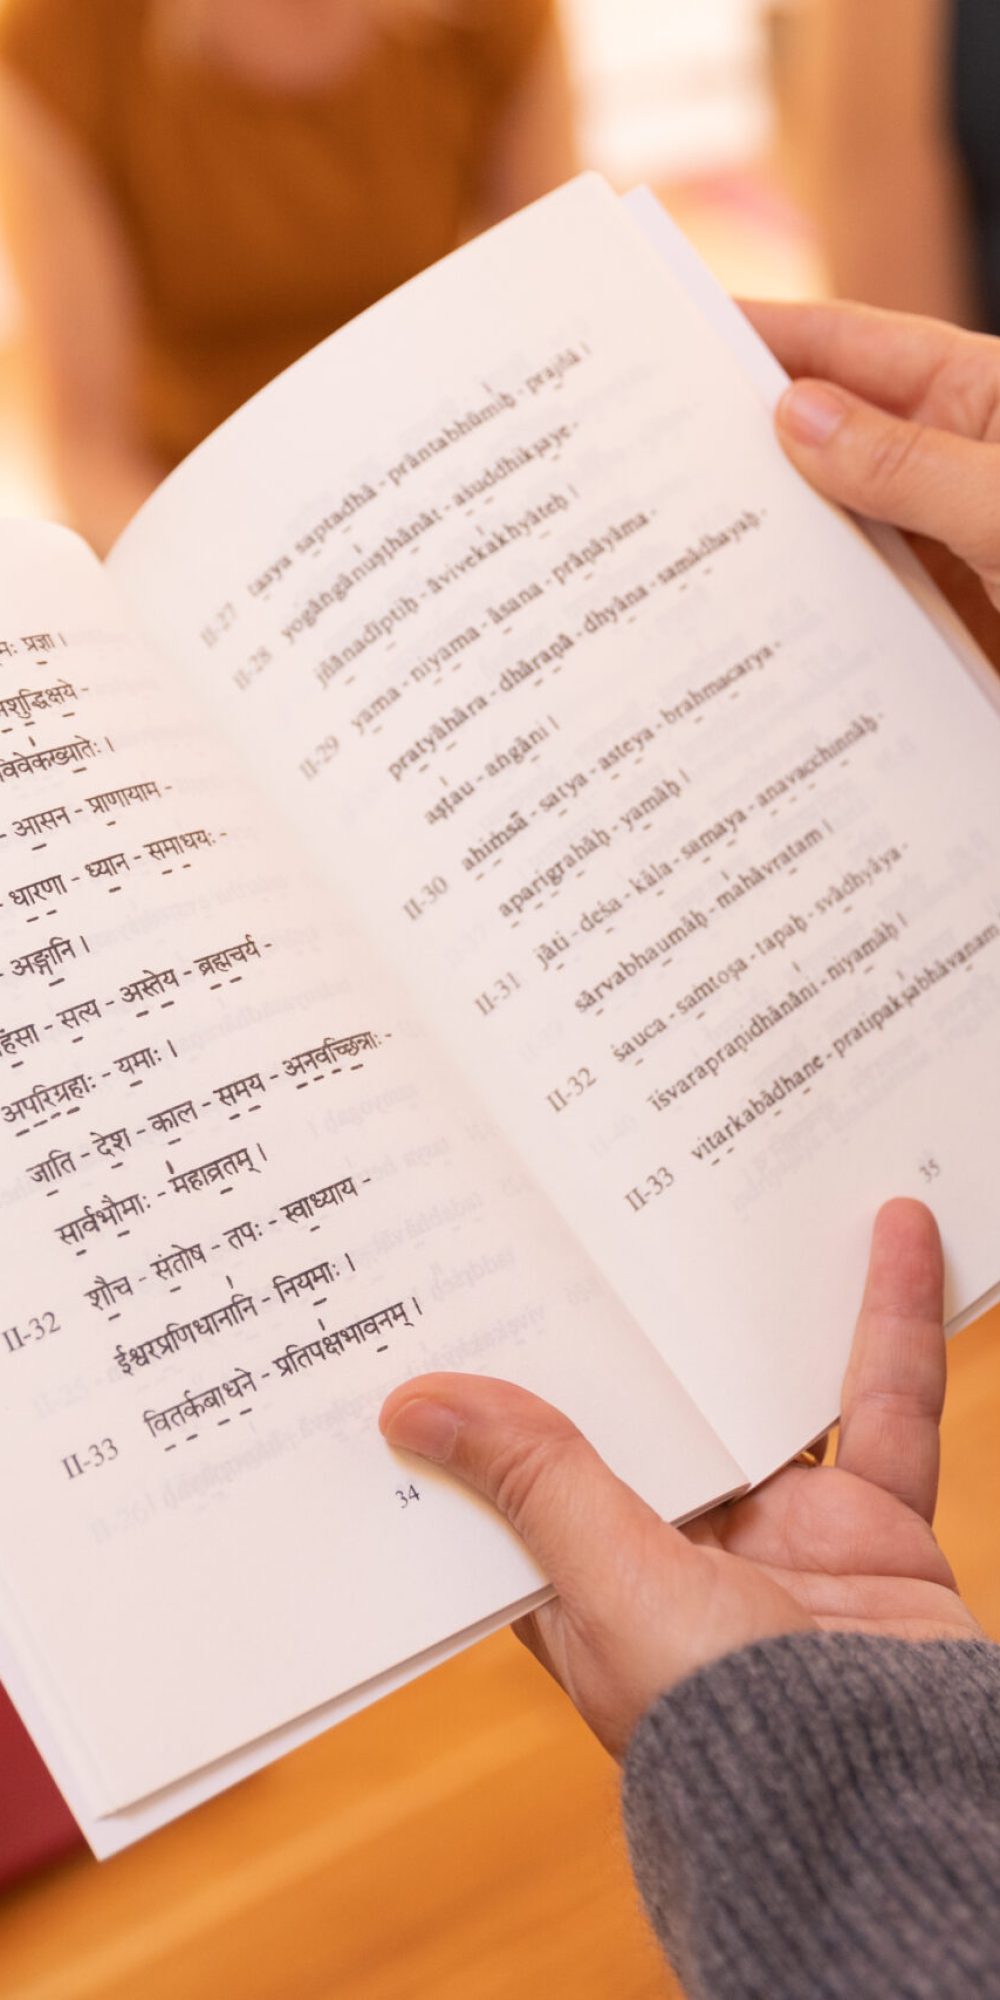 प्रज्ञा ।
आसन - प्राणायाम -
- धारणा - ध्यान - समाधयः -
- अङ्गानि ।
सत्य - अस्तेय - ब्रह्मचर्य -
अपरिग्रहाः - यमाः ।
जाति - देश - काल - समय - अनवच्छिन्नाः -
सार्वभौमाः - महाव्रतम् ।
II-32 शौच - संतोष - तपः - स्वाध्याय -
ईश्वरप्रणिधानानि - नियमाः ।
II-33 वितर्कबाधने - प्रतिपक्षभावनम् ।
34
II-27 tasya saptadhā - prāntabhūmiḥ - prajñā ।
II-28 yogāṅgānuṣṭhānāt - aśuddhikṣaye -
jñānadīptiḥ - āvivekakhyāteḥ ।
II-29 yama - niyama - āsana - prāṇāyāma -
pratyāhāra - dhāraṇā - dhyāna - samādhayaḥ -
aṣṭau - aṅgāni ।
II-30 ahiṁsā - satya - asteya - brahmacarya -
aparigrahāḥ - yamāḥ ।
II-31 jāti - deśa - kāla - samaya - anavacchinnāḥ -
sārvabhaumāḥ - mahāvratam ।
II-32 śauca - saṁtoṣa - tapaḥ - svādhyāya -
īśvarapraṇidhānāni - niyamāḥ ।
II-33 vitarkabādhane - pratipakṣabhāvanam
35